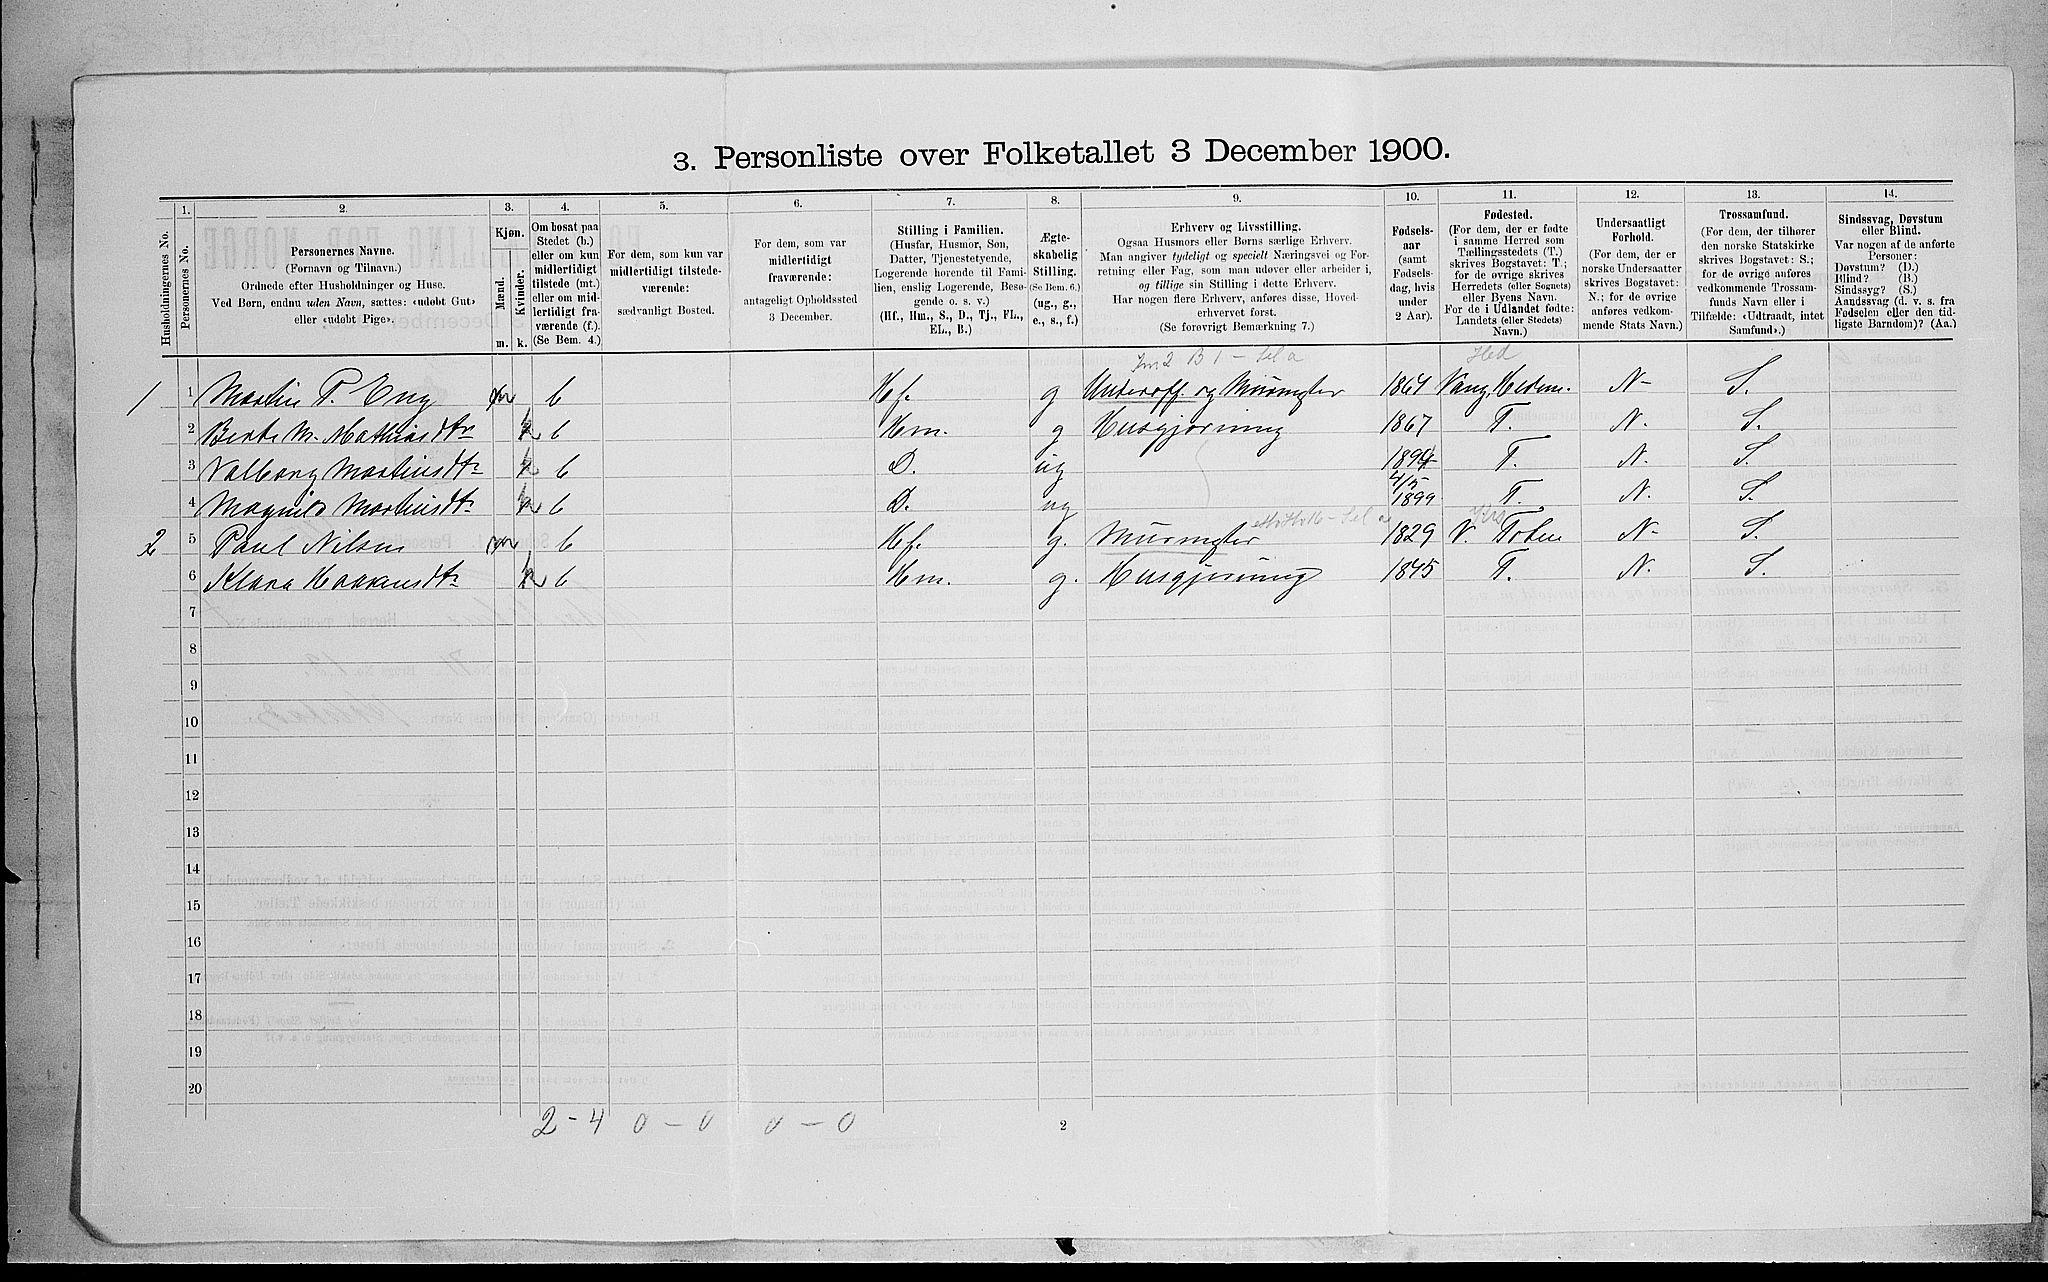 3. Personliste over Folketallet 3 December 1900.
1. 2. 3. 4. 5. 6. 7. 8. 9. 10. 11. 12. 13. 14.
Husholdningernes No.
Personernes No.
Personernes Navne.
(Fornavn og Tilnavn.)
Ordnede efter Husholdninger og Huse.
Ved Børn, endnu uden Navn, sættes: «udøbt Gut»
eller «udøbt Pige».
Kjøn.
Mænd.
Kvinder.
m. k.
Om bosat paa
Stedet (b.)
eller om kun
midlertidigt
tilstede (mt.)
eller om mid-
lertidigt fra-
værende (f.).
(Se Bem. 4.)
For dem, som kun var
midlertidigt tilstede-
værende:
sædvanligt Bosted.
For dem, som var
midlertidigt
fraværende:
antageligt Opholdssted
3 December.
Stilling i Familien.
(Husfar, Husmor, Søn,
Datter, Tjenestetyende,
Logerende hørende til Fami-
lien, enslig Logerende, Besø-
gende o. s. v.)
(Hf., Hm., S., D., Tj., FL.,
EL., B.)
Ægte-
skabelig
Stilling.
(Se Bem. 6.)
(ug., g.,
e., s., f.)
Erhverv og Livsstilling.
Ogsaa Husmors eller Børns særlige Erhverv.
Man angiver tydeligt og specielt Næringsvei og For-
retning eller Fag, som man udøver eller arbeider i,
og tillige sin Stilling i dette Erhverv.
Har nogen flere Erhverv, anføres disse, Hoved-
erhvervet først.
(Se forøvrigt Bemærkning 7.)
Fødsels-
aar
(samt
Fødsels-
dag, hvis
under
2 Aar).
Fødested.
(For dem, der er fødte
i samme Herred som
Tællingsstedets (T.)
skrives Bogstavet: T.;
for de øvrige skrives
Herredets (eller Sognets)
eller Byens Navn.
For de i Udlandet fødte:
Landets (eller Stedets)
Navn.)
Undersaatligt
Forhold.
(For dem, der er
norske Undersaatter
skrives Bogstavet:
N.; for de øvrige
anføres vedkom-
mende Stats Navn.)
Trossamfund.
(For dem, der tilhører
den norske Statskirke
skrives Bogstavet: S.;
for de øvrige anføres
vedkommende Trossam-
funds Navn eller i
Tilfælde: «Udtraadt, intet
Samfund».)
Sindssvag, Døvstum
eller Blind.
Var nogen af de anførte
Personer:
Døvstum? (D.)
Blind? (B.)
Sindssyg? (S.)
Aandssvag (d. v. s. fra
Fødselen eller den tid-
ligste Barndom)? (Aa.)
Hed
1 1 Martin P. Eng m b Hf. g Underoff. og Murmester 1864 Vang, Hedem. N- S.
2 Berte M. Mathiasdtr k b Hm. g Husgjerning 1867 T. N. S.
3 Valborg Martinsdtr k b D. ug 1894 T. N. S.
4 Magnild Martinsdtr k b D. ug 4/5 1899 T. N. S.
Krs
2 5 Paul Nilsen m b Hf. g. Murmester 1829 V. Toten N- S.
6 Klara Haakensdtr k b Hm. g. Husgjerning 1845 T. N. S.
7
8
9
10
11
12
13
14
15
16
17
18
19
20
2 - 4 0 - 0 0 - 0
2